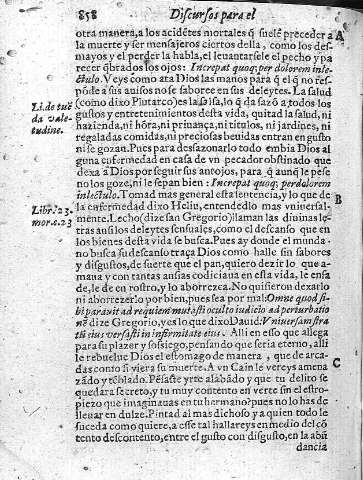 858 Discursos para el
otra manera, a los acidẽtes mortales q̃ suelẽ preceder a
la muerte y ser mensajeros ciertos della, como los des-
mayos y el perder la habla, el leuantarsele el pecho y pa
recer q̃brados los ojos: Increpat quoq; per dolorem inle-
ctulo. Veys como ata Dios las manos para q̃ el q̃ no res-
põde a sus auisos no se saboree en sus deleytes. La salud
(como dixo Plutarco) es la sal sa, lo q̃ da sazõ a todos los
gustos y entretenimiẽtos desta vida, quitad la salud, ni
hazienda, ni hõra, ni priuança, ni titulos, ni jardines, ni
regaladas comidas, ni preciosas beuidas entran en gusto
ni se gozan. Pues para desazonarlo todo embia Dios al
guna enfermedad en casa de vn pecador obstinado que
dexa a Dios por seguir sus antojos, para q̃ aunq̃ le pese
no los goze, ni le sepan bien: Increpat quoq; per dolorem
inlectulo. Tomad mas general esta sentencia, y lo que de
la enfermedad dixo Heliu, entendedlo mas vniuersal-
mente. Lecho (dize san Gregorio) llaman las diuinas le-
tras a us los deleytes sensuales, como el descanso que en
los bienes desta vida se busca. Pues ay donde el munda-
no busca su descanso traça Dios como halle sin sabores
y disgustos, de suerte que el pan, quiero dezir lo que a-
maua y con tantas ansias codiciaua en esta vida, le enfa
de, le dè en rostro, y lo aborrezca. No quisieron dexarlo
ni aborrezerlo por bien, pues sea por mal: Omne quod si-
bi parauit ad requiem mutasti oculto iudicio ad perturbatio
nẽ dize Gregorio, y es lo que dixo Dauid: Vniuersum stra
tũ eius versasti in infirmitate eius. Alli en esso que allega
para su plazer y sosiego, pensando que seria eterno, alli
le rebuelue Dios el estomago de manera, que de arca-
das como si viera su muerte. A vn Cain le vereys amena
zado y tẽblado. Pẽsaste yrte alabãdo y que tu delito se
quedara secreto, y tu muy contento en verte sin el estro-
pieço que imaginauas en tu hermano? pues no lo has de
lleuar en dulze. Pintad al mas dichoso y a quien todo le
suceda como quiere, a esse tal hallareys en medio del cõ
tento descontento, entre el gusto con disgusto, en la abũ
dancia
A
Li. de tuẽ
da vale-
tudine.
B
Libr. 23.
mora. c. 23
C